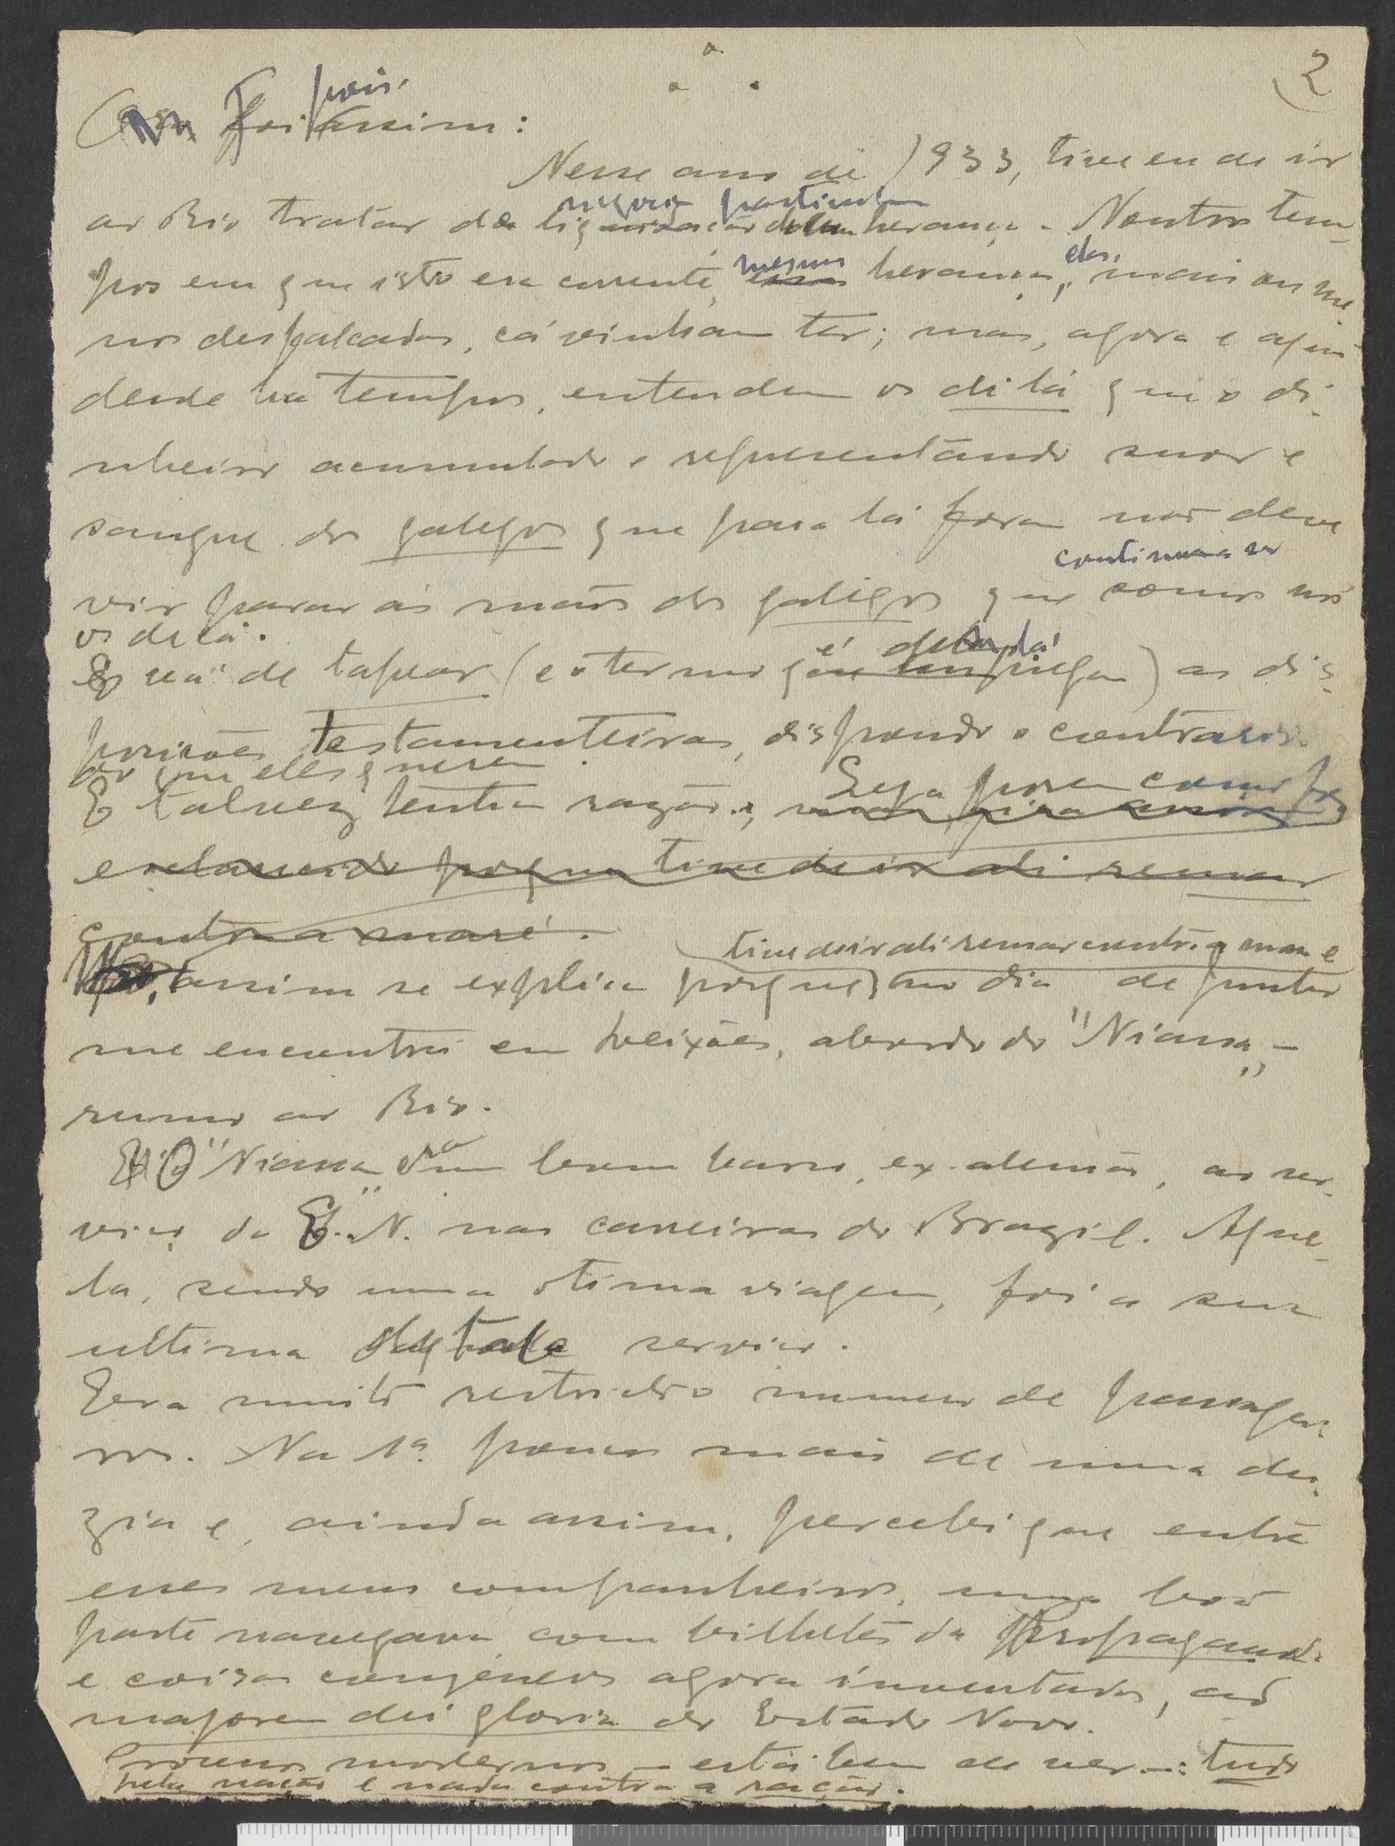 2
Foi pois assim:
Nesse ano de 1933, tive eu de ir
ao Rio tratar da liquidação duma herança. Noutros tem-
negocio particular
pos em que isto era corrente, mesmo heranças, elas, mais ou me-
nos desfalcadas, cá vinham ter; mas, agora e
desde ha tempos, entendem os de lá que o di-
nheiro acumulado e representando suor e
sangue dos galegos que para lá foram não deve
vir parar ás mãos dos galegos que somos nós
continuam a ser
os de cá.
de tapear (e o termo é de lá) as dis-
posições testamenteiras, dispondo o contrario
do que eles querem.
E talvez tenham razão. Seja porem como for
esclarecido porque tive de ir ali remar
contra a maré.
assim se explica porque tive de ir ali remar contra a maré
no dia de junho
me encontrei em Leixões, abordo do "Niassa" –
rumo ao Rio.
O "Niassa" era um bom barco, ex-alemão, ao ser-
viço da E. N. nas carreiras do Brazil. Aque-
la, sendo uma otima viagem, foi a sua
ultima deste serviço.
Era muito restrito o numero de passagei-
ros. Na 1ª pouco mais de uma du-
zia e, ainda assim, percebi que entre
esses meus companheiros, uma boa
parte navegava com bilhetes da Propaganda
e coisas congéneres agora inventadas, ad
majorem dei gloria do Estado Novo.
Processos modernos – está bem de ver –: tudo
pela nação e nada contra a nação.